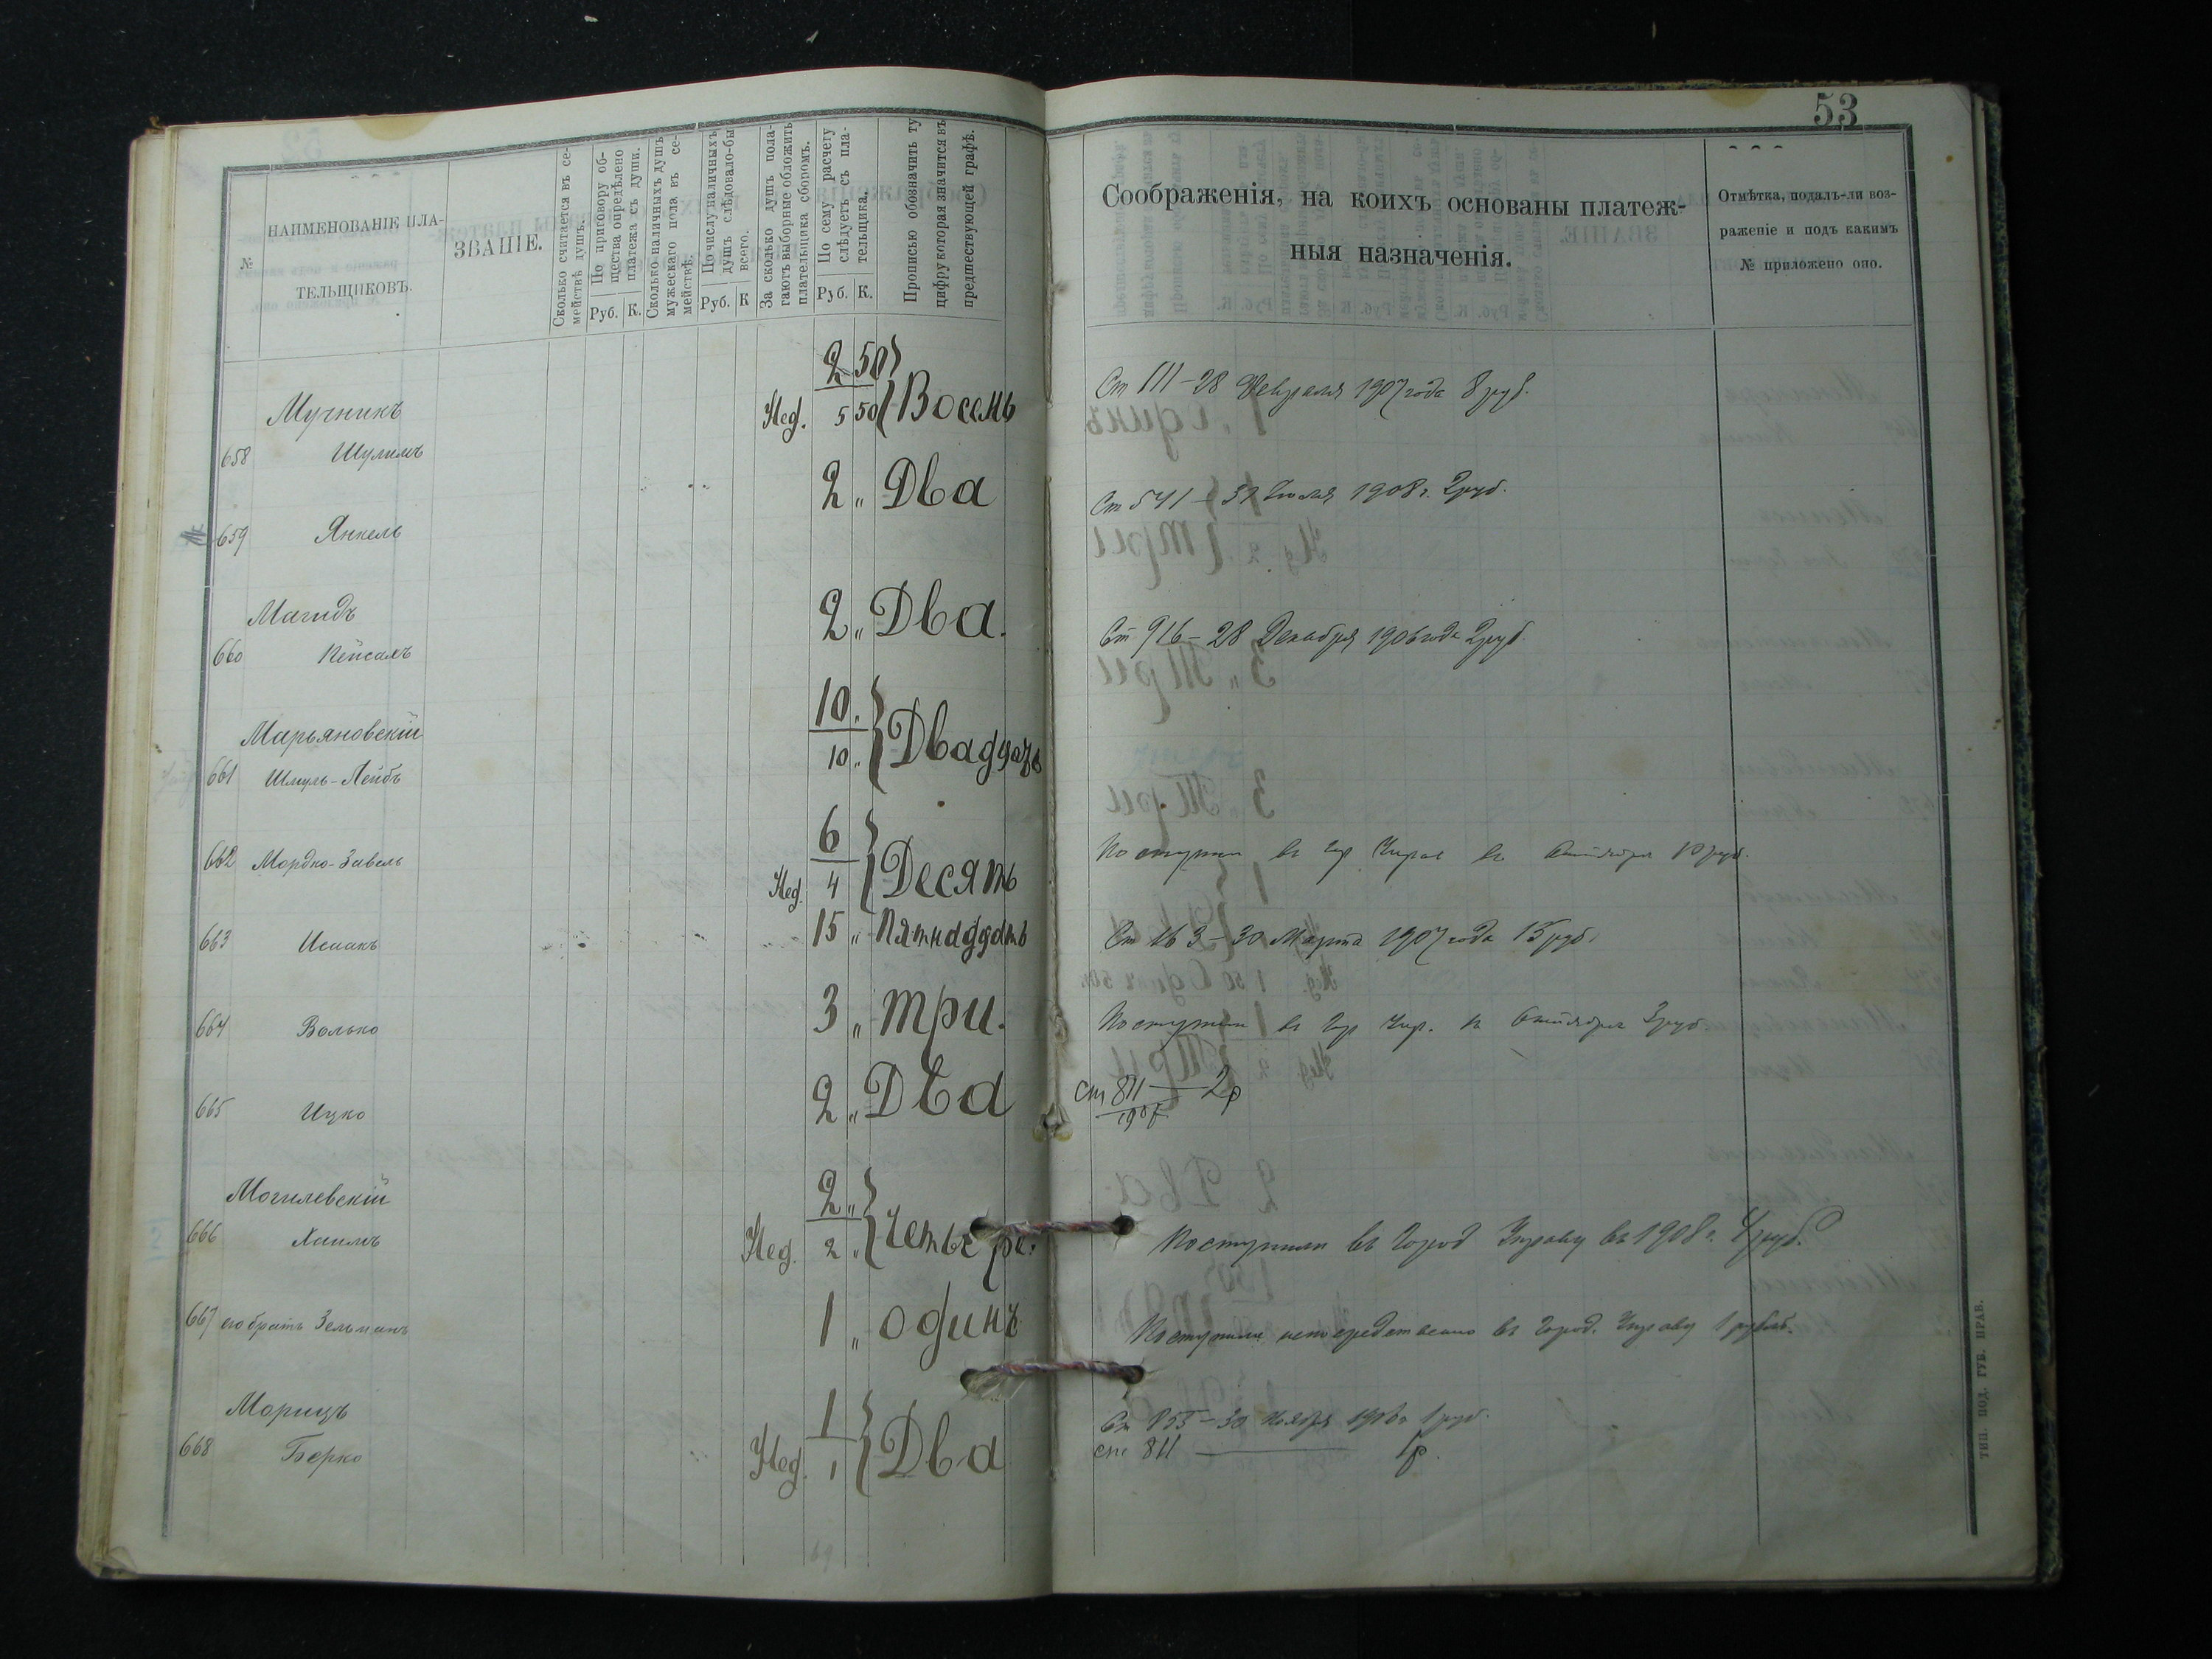 53
№
НАИМЕНОВАНІЕ ПЛА-
ТЕЛЬЩИКОВЪ.
ЗВАНІЕ.
Сколько считается въ се-
мействѣ душъ.
По приговору об-
щества опредѣлено
платежа съ души.
Руб. К.
Сколько наличныхъ душъ
мужескаго пола въ се-
мействѣ.
По числу наличныхъ
душъ слѣдовало-бы
всего.
Руб. К
За сколько душъ пола-
гаютъ выборные обложить
плательщика сборомъ.
По сему расчету
слѣдуетъ съ пла-
тельщика.
Руб. К.
Прописью обозначить ту
цифру которая значится въ
предшествующей графѣ.
Соображенія, на коихъ основаны платеж-
ныя назначенія.
Отмѣтка, подалъ-ли воз-
раженіе и подъ какимъ
№ приложено оно.
2 50
Мучникъ Нед. 5 50 Восемь Ст 111 - 28 Февраля 1907 года 8 руб.
658 Шулимъ
2 " Два Ст 541 - 31 Іюля 1908 г. 2 руб.
659 Янкель
Магидъ 2 " Два. Ст 916 - 28 Декабря 1906 года 2 руб.
660 Пейсахъ
10 "
Марьяновскій 10 " Двадцать
661 Шмуль-Лейбъ
6
662 Мордко-Завель Нед. 4 Десять Поступил въ Гор Управ въ Октября 10 руб.
663 Исаакъ 15 " Пятнадцать Ст 163 - 30 Марта 1907 года 15 руб.
664 Волько 3 " Три. Поступили въ Гор Упр. въ Октября 3 руб.
665 Ицко 2 " Два ст 811 — 2р
1907
Могилевскій 2 "
666 Хаимъ Нед. 2 " Четыре. Поступили въ Город Управу въ 1908 г. 4 руб.
667 его братъ Зельманъ 1 " Одинъ Поступили непосредственно въ Город. Управу 1 рубль.
Морицъ 1 Ст 855 - 30 Ноября 1906 1 руб.
668 Берко Нед. 1 Два ст 811 — 1р.
ТИП. ПОД. ГУБ. ПРАВ.